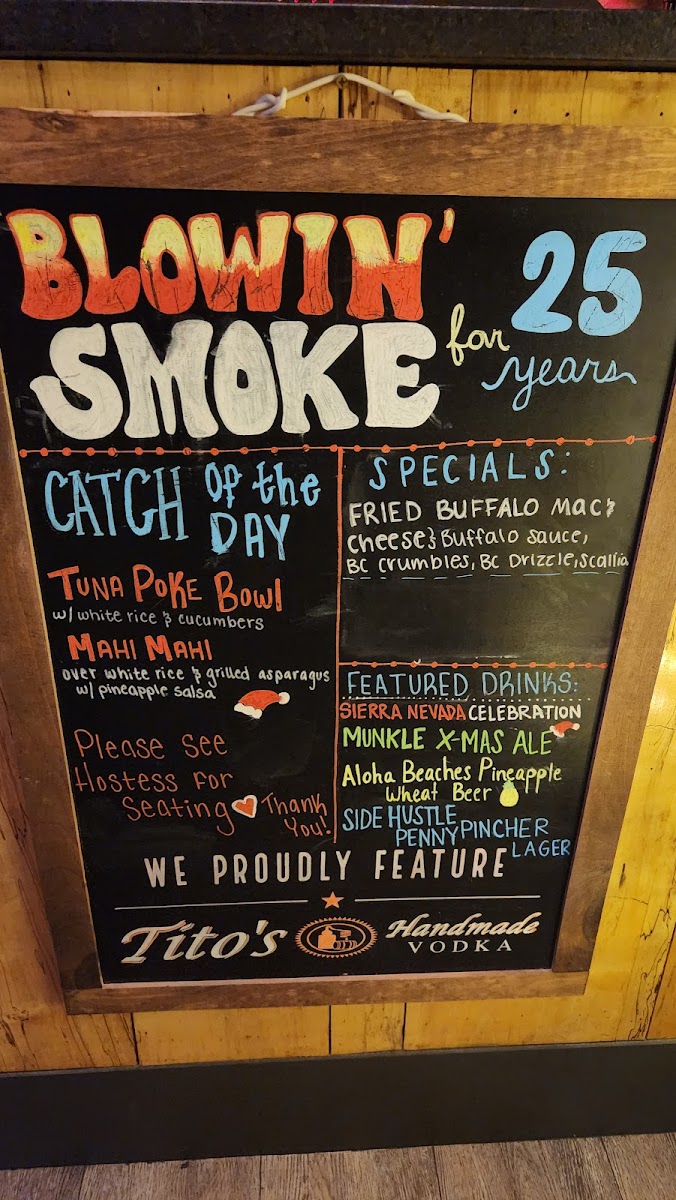 BLOWIN'
SMOKE
for 25
years
CATCH of the
DAY
TUNA POKE BOWL
w/ white rice & cucumbers
MAHI MAHI
over white rice & grilled asparagus
w/ pineapple salsa
Please see
Hostess for
Seating Thank
You!
SPECIALS:
FRIED BUFFALO Mac &
cheese } Buffalo sauce,
BC crumbles, BC Drizzle, Scallia
FEATURED DRINKS:
SIERRA NEVADA CELEBRATION
MUNKLE X-MAS ALE
Aloha Beaches Pineapple
Wheat Beer
SIDE HUSTLE
PENNYPINCHER
LAGER
WE PROUDLY FEATURE
Tito's Handmade
VODKA